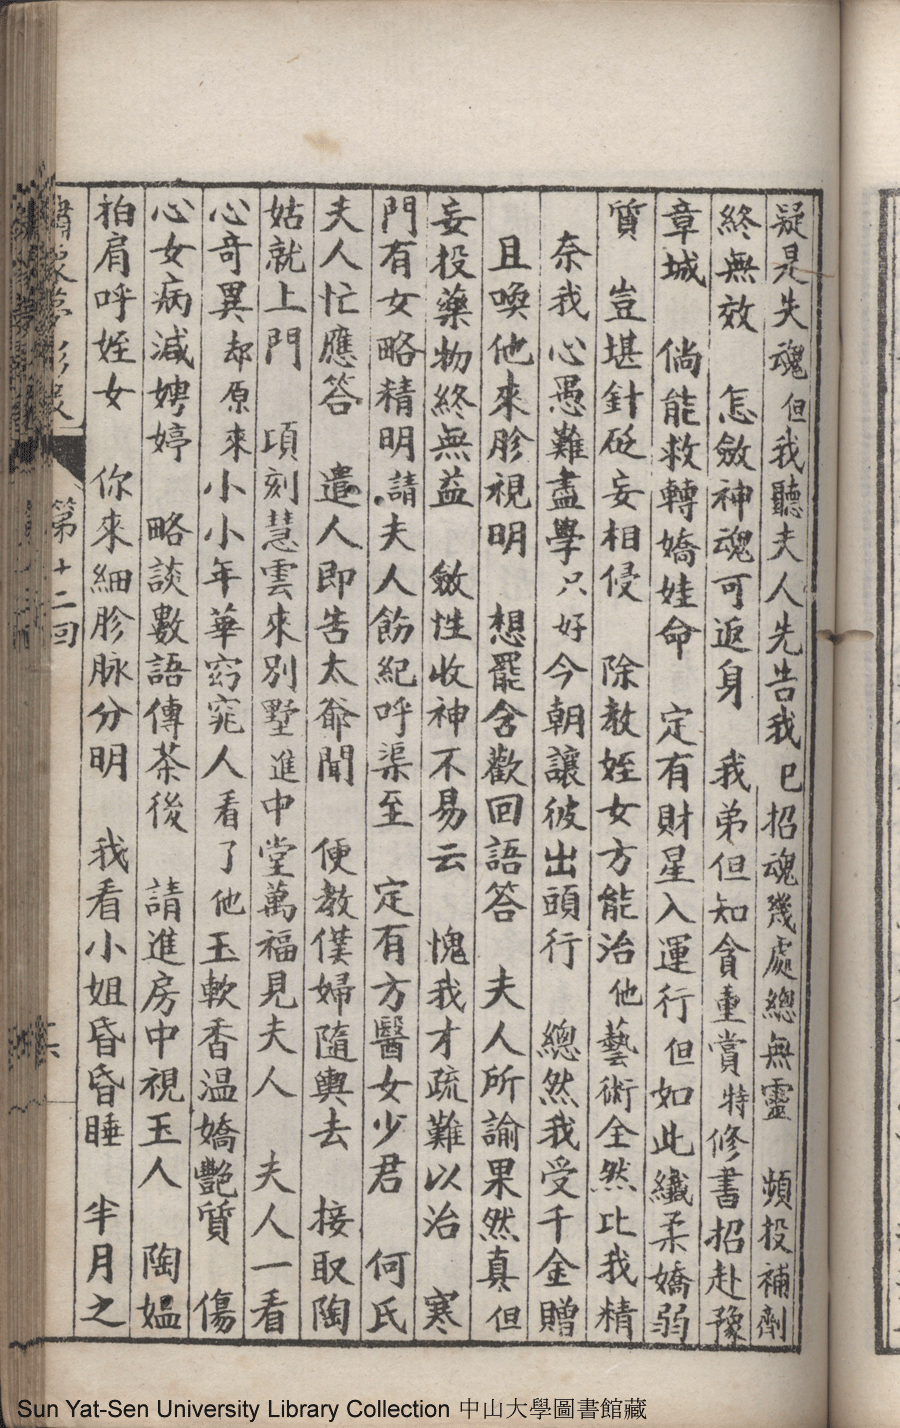 疑是失魂但我聽夫人先告我已招魂幾處總無靈　頻投補劑
終無效　怎斂神魂可返身　我弟但知貪重賞特修書招赴豫
章城　倘能救轉嬌娃命　定有財星入運行但如此纖柔嬌弱
質　豈堪針砭妄相侵　除教姪女方能治他藝術全然比我精
奈我心愚難盡學只好今朝讓彼出頭行　總然我受千金贈
且喚他來胗視明　想罷含歡回語答　夫人所諭果然真但
妄投藥物終無益　斂性收神不易云　愧我才疏難以治　寒
門有女略精明請夫人飭紀呼渠至　定有方醫女少君　何氏
夫人忙應答　遣人即告太爺聞　便教僕婦隨輿去　接取陶
姑就上門　頃刻慧雲來別墅進中堂萬福見夫人　夫人一看
心奇異却原來小小年華窈窕人看了他玉軟香温嬌艷質　傷
心女病減娉婷　略談數語傳茶後　請進房中視玉人　陶媪
拍肩呼姪女　你來細胗脉分明　我看小姐昏昏睡　半月之
第十二回
Sun Yat-Sen University Library Collection 中山大學圖書館藏